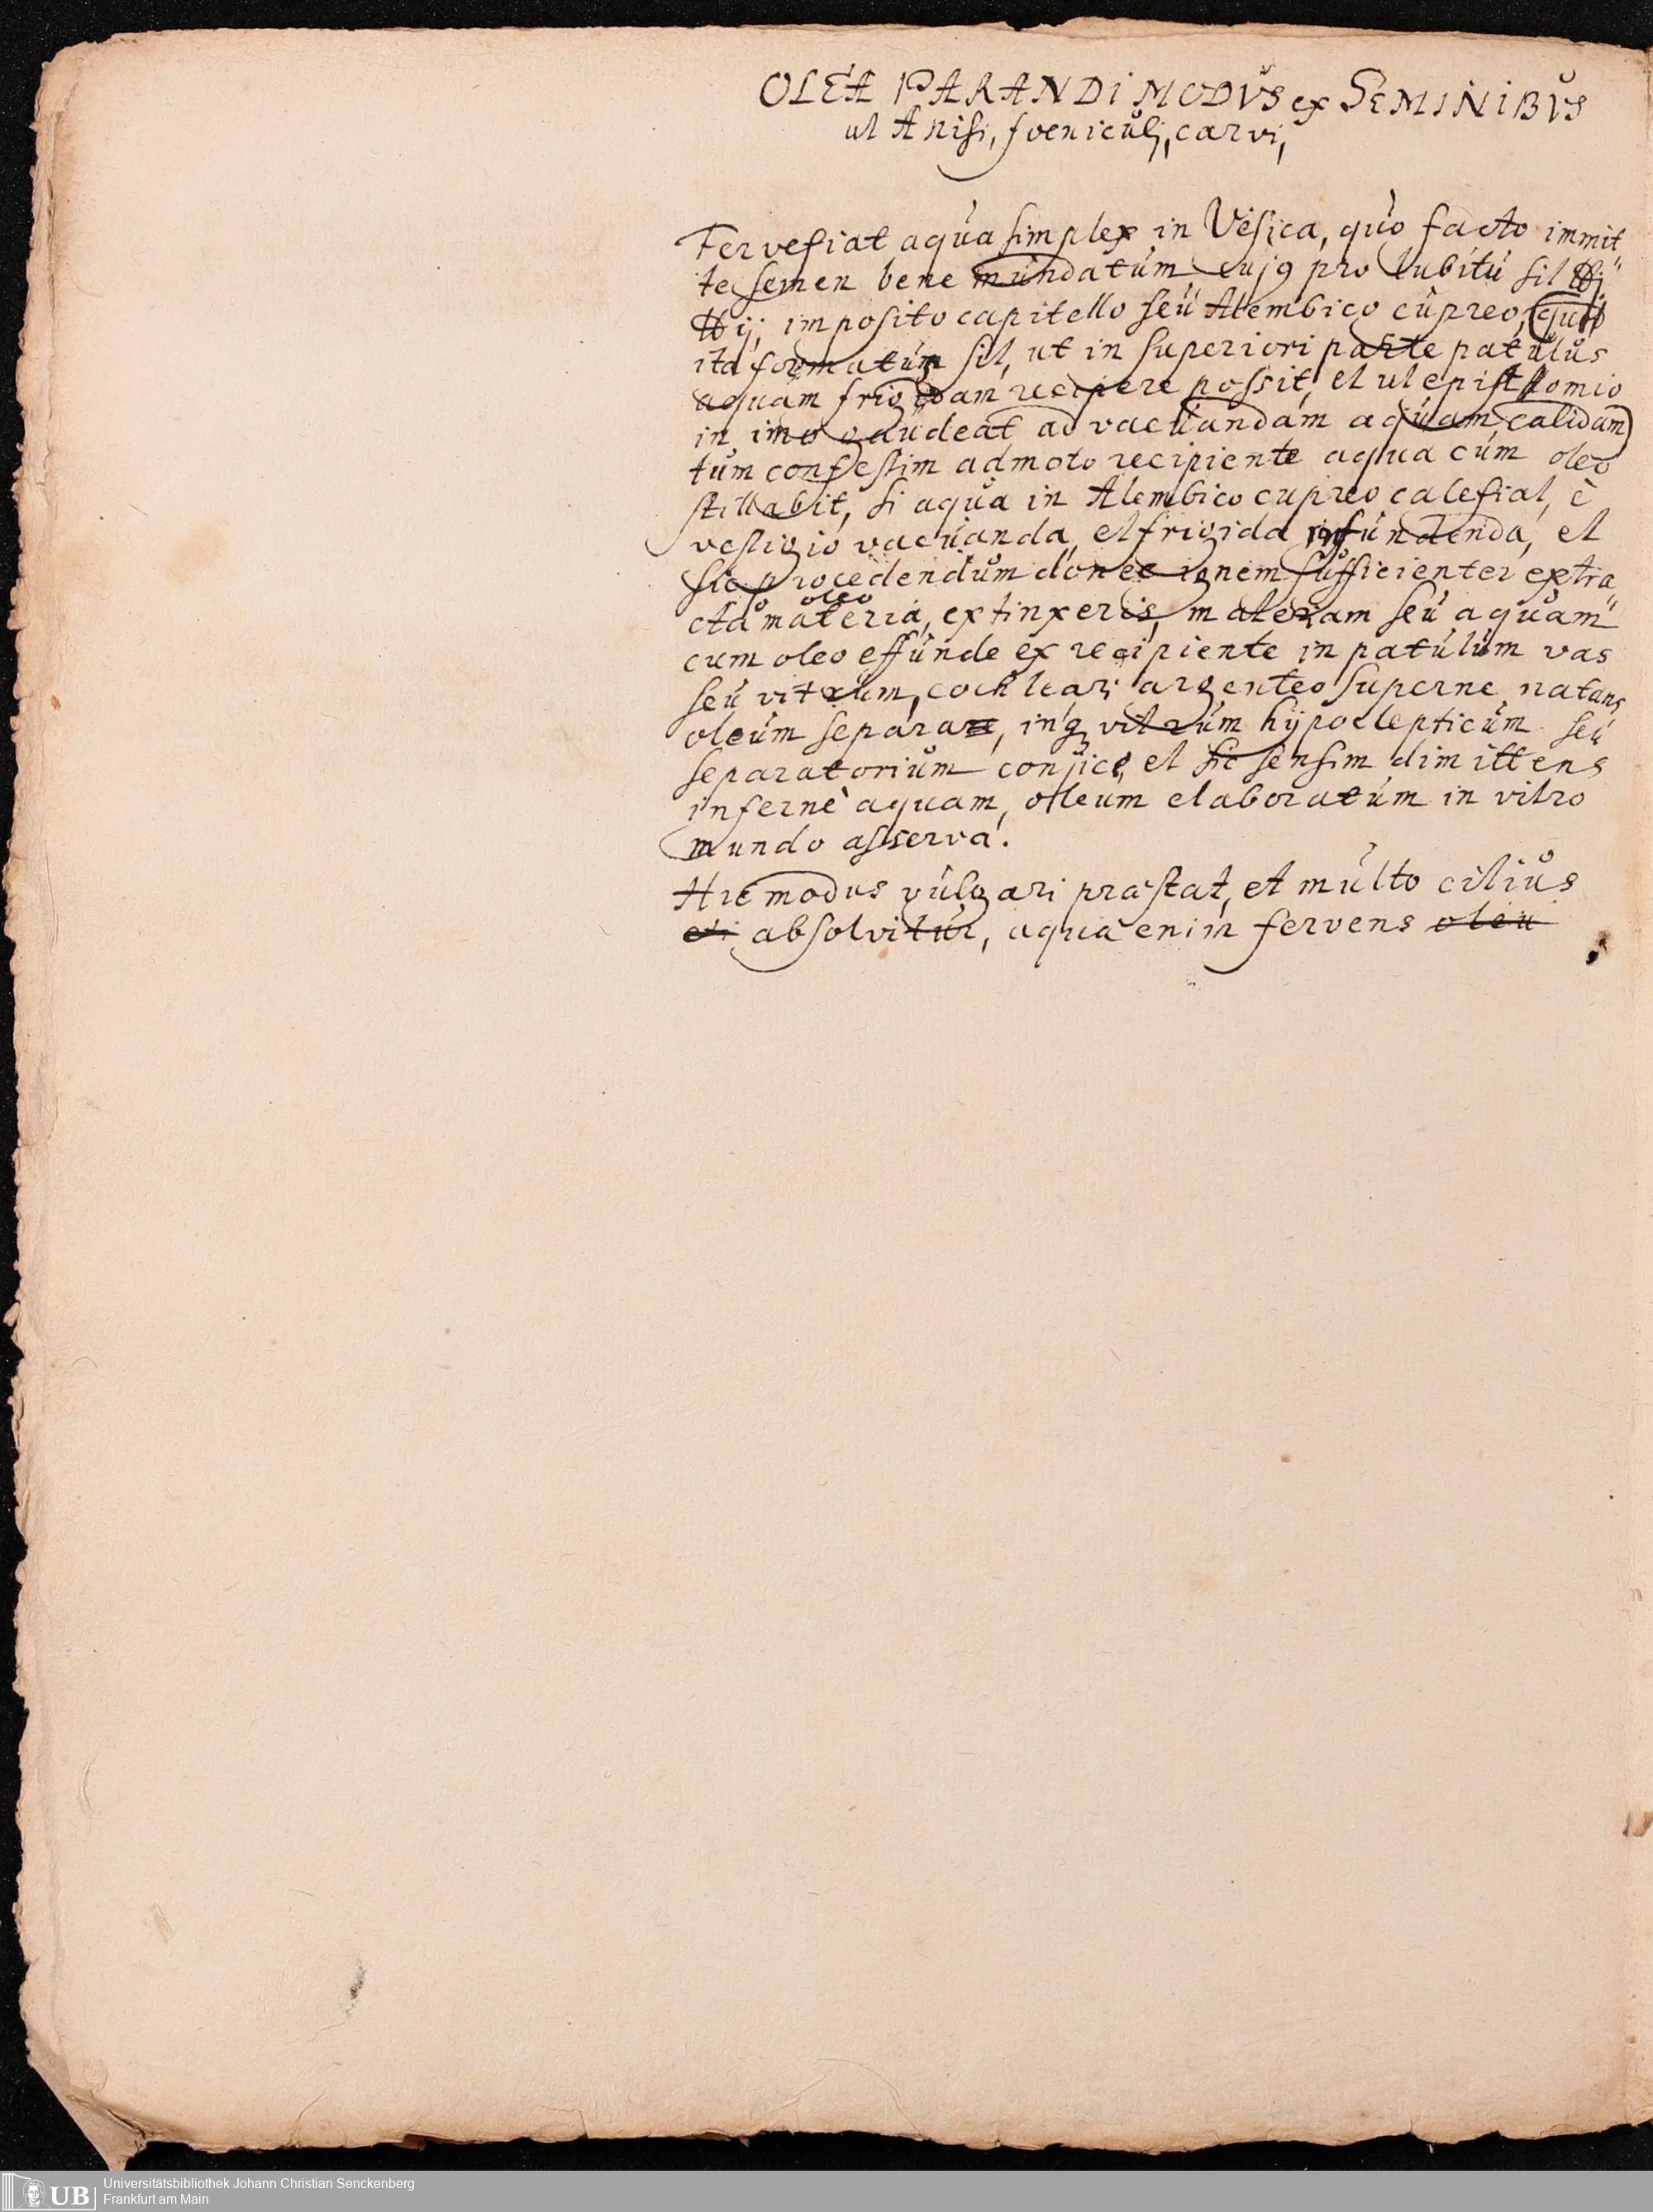 OLEA PARANDI MODVS ex SEMINIBVS
ut Anisi, foeniculj, carvi,
Fervefiat aqua simplex in Vesica, quo facto immit„
te semen bene mundatum, cuj9 pro lubitu sit ℔j
℔ij, imposito capitello seu Alembico cupreo,
ita formatum sit, ut in superiori parte patulus
aquam frigidam recipere possit, et ut epistomio
in imo gaudeat ad vacuandam aquam calidam
tum confestim admoto recipiente aqua cum oleo
stillabit, si aqua in Alembico cupreo calefiat, è
vestigio vacuanda, et frigida infundenda, et
sic procedendum donec ignem sufficienter extra„
oleo
cta materia, extinxeris, materiam seu aquam
cum oleo effunde ex recipiente in patulum vas
seu vitrum, cochleari argenteo superne natans
oleum separare, inq vitrum hÿpoclepticum seu
separatorium conjice, et sic sensim dimittens
infernè aquam, oleum elaboratum in vitro
mundo asserva.
Hic modus vulgari præstat, et multo citius
et absolvitur, aqua enim fervens oleu
Universitätsbibliothek Johann Christian Senckenberg
Frankfurt am Main
UB